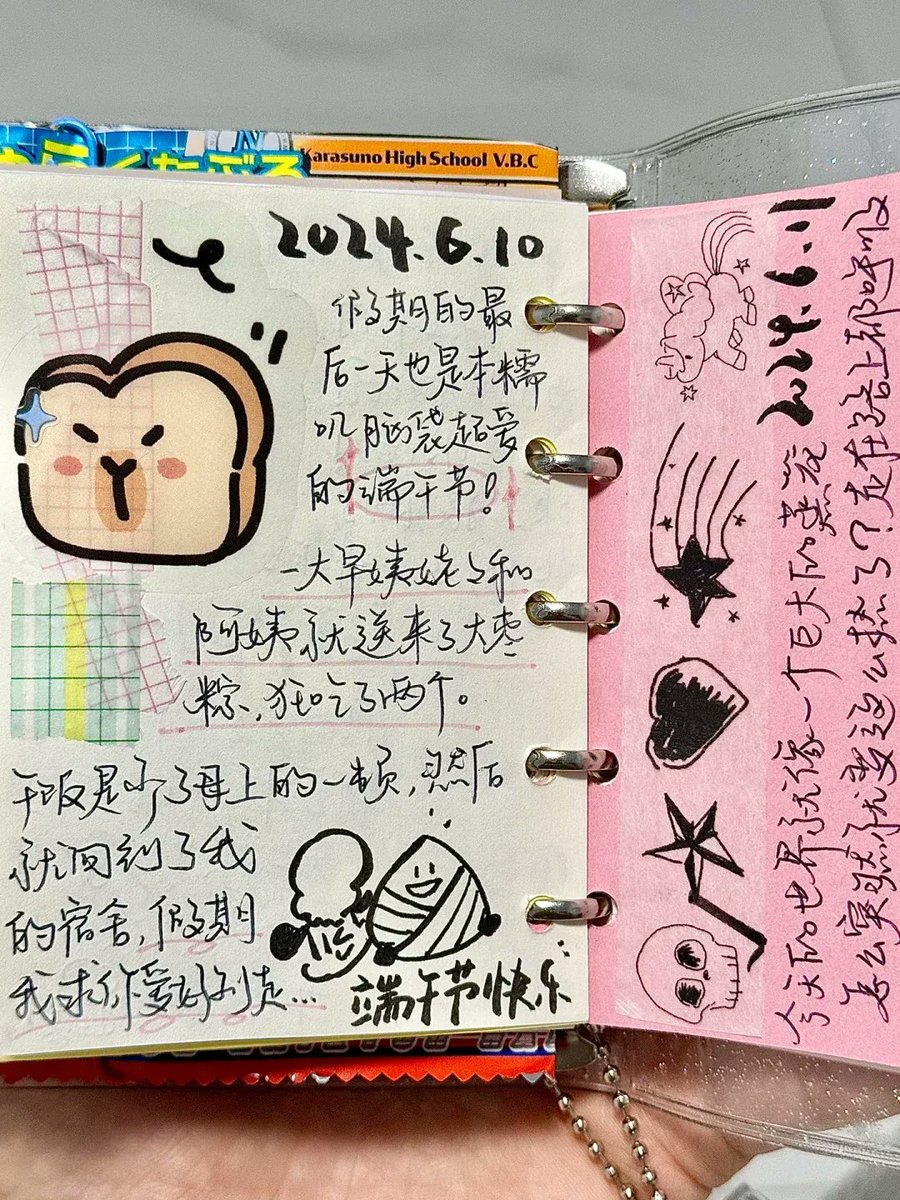 Karasuno High School V.B.C
2024.6.10
假期的最
后一天也是本糯
叽脑袋超爱
的端午节!
一大早姨姥々和
阿姨就送来了大枣
粽,狂吃了两个。
午饭是 了母上的一顿,然后
就回到了我
的宿舍,假期
我求你 别走...
端午节快乐
2024.6.11
今天的世界就像一个巨大的蒸
怎么突然就变这么热了?走在路上都呼吸